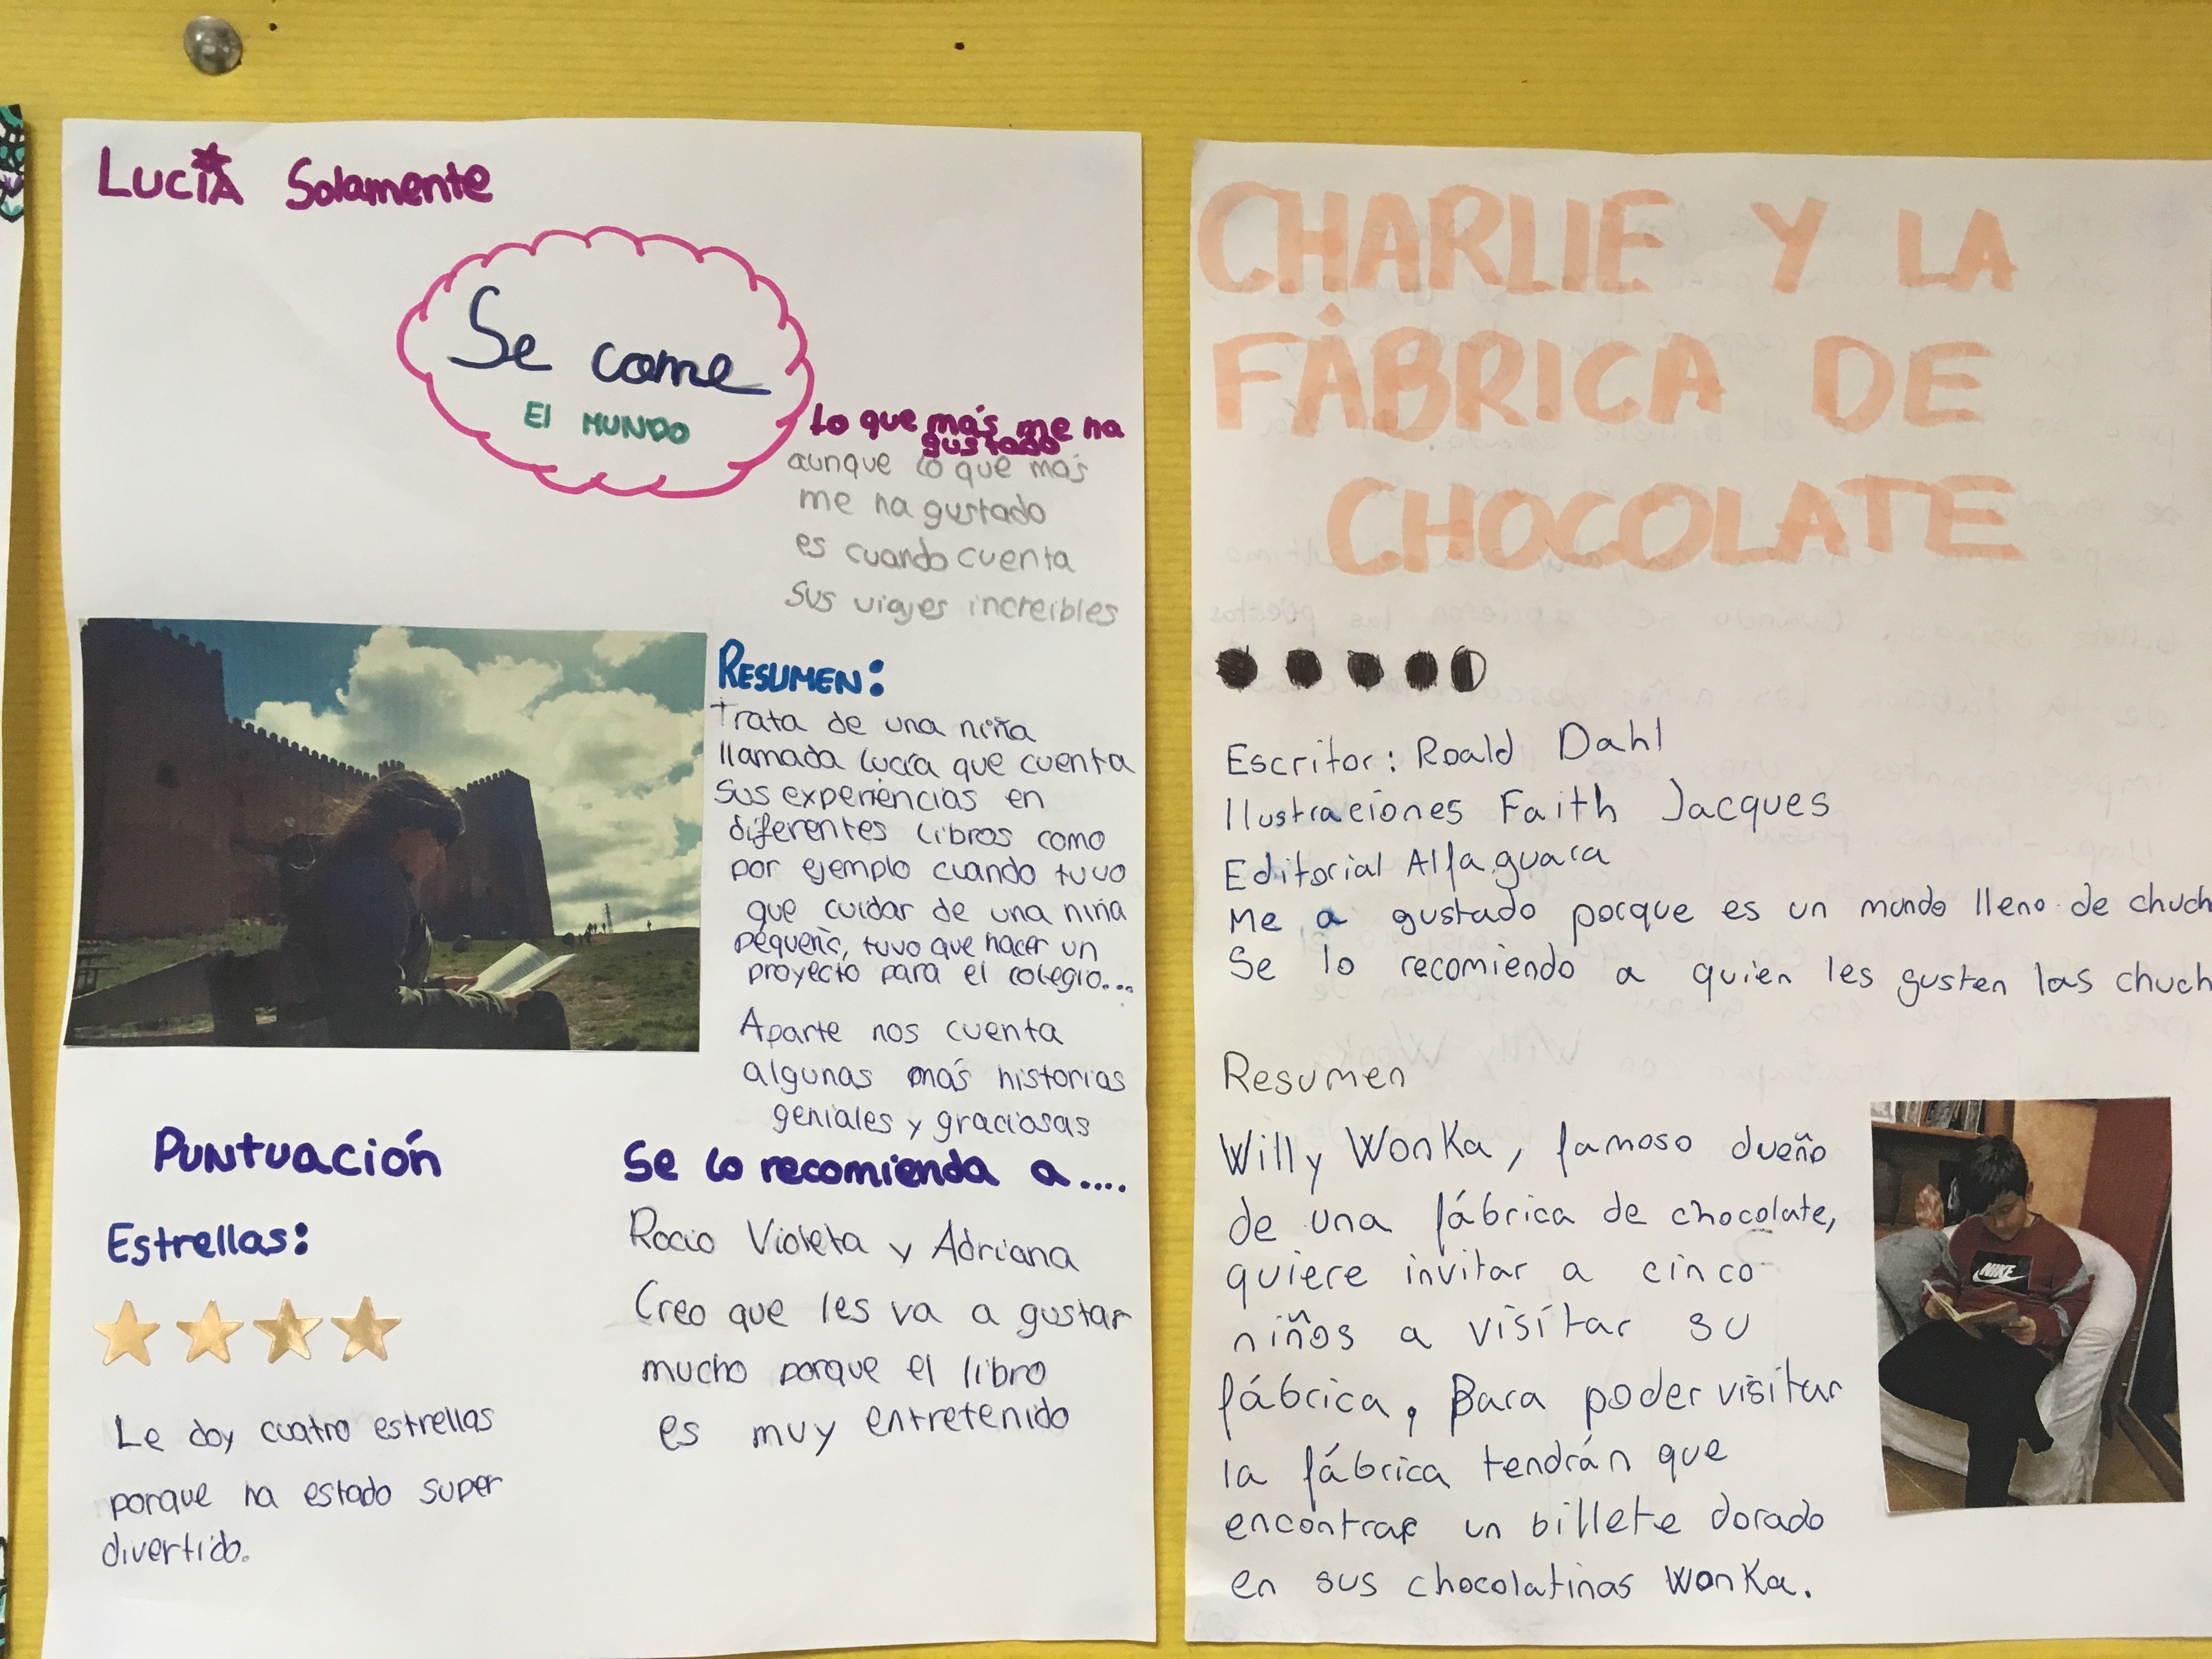 LUCÍA Solamente
Se come
El MUNDO
Lo que más me ha
gustado
aunque lo que más
me ha gustado
es cuando cuenta
sus viajes increibles
RESUMEN:
Trata de una niña
llamada Lucía que cuenta
sus experiencias en
diferentes libros como
por ejemplo cuando tuvo
que cuidar de una niña
pequeña, tuvo que hacer un
proyecto para el colegio...
Aparte nos cuenta
algunas más historias
geniales y graciosas
Puntuación
Estrellas:
Le doy cuatro estrellas
porque ha estado super
divertido.
Se lo recomienda a....
Rocio Violeta y Adriana
Creo que les va a gustar
mucho porque el libro
es muy entretenido
CHARLIE Y LA
FÁBRICA DE
CHOCOLATE
Escritor: Roald Dahl
Ilustraciones Faith Jacques
Editorial Alfaguara
Me a gustado porque es un mundo lleno de chuch
Se lo recomiendo a quien les gusten las chuch
Resumen
Willy Wonka, famoso dueño
de una fábrica de chocolate,
quiere invitar a cinco
niños a visitar su
fábrica, Para poder visitar
la fábrica tendrán que
encontrar un billete dorado
en sus chocolatinas Wonka.
NIKE